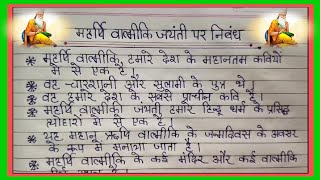 महर्षि वाल्मीकि जयंती पर निबंध
* महर्षि वाल्मीकि, हमारे देश के महानतम कवियों
में से एक हैं।
* वह चारशानी और सुलामी के पुत्र थे।
* वह हमारे देश के सबसे प्राचीन कवि हैं।
* महर्षि वाल्मीकी जयंती हमारे हिन्दू धर्म के प्रसिद्ध
त्योहारों में से एक है।
* यह महान् ऋषि वाल्मीकि के जन्मदिवस के अवसर
के रूप में मनाया जाता है।
* महर्षि वाल्मीकि के कई मंदिर और कई वाल्मीकि